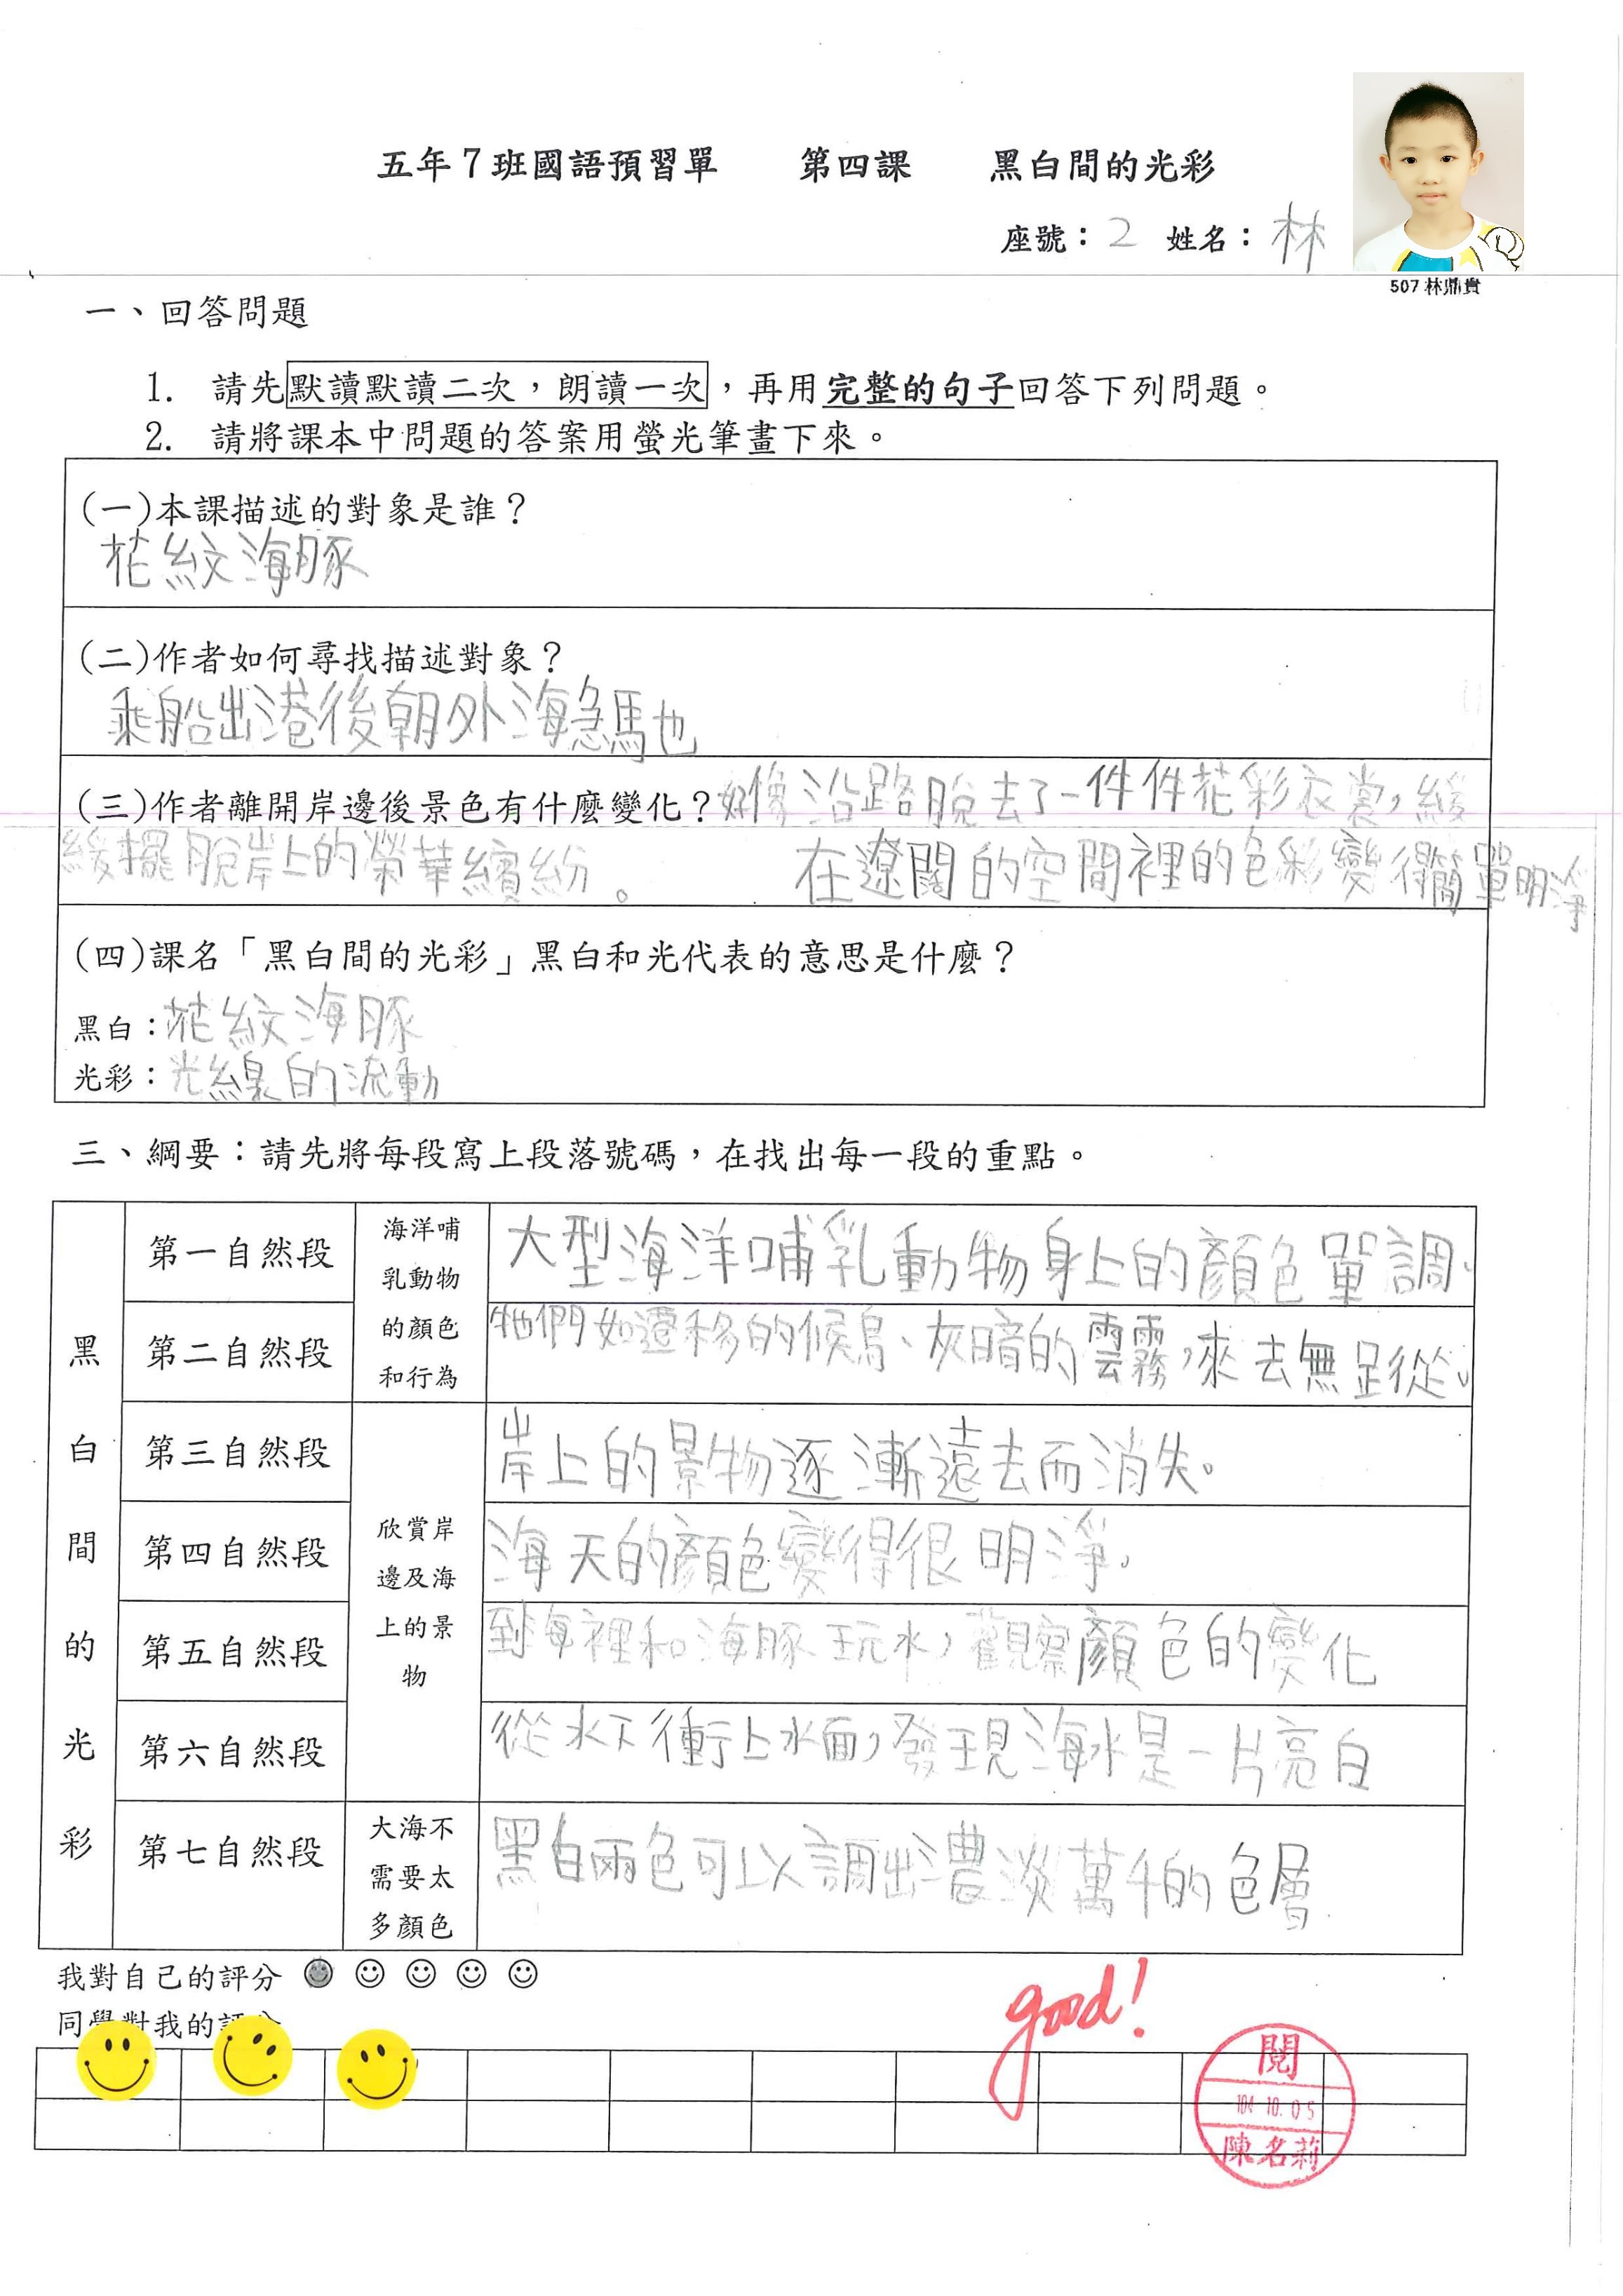 五年7班國語預習單　　第四課　　黑白間的光彩
座號：2 姓名：林
507林鼎貴
一、回答問題
1. 請先默讀默讀二次，朗讀一次，再用完整的句子回答下列問題。
2. 請將課本中問題的答案用螢光筆畫下來。
(一)本課描述的對象是誰？
花紋海豚
(二)作者如何尋找描述對象？
乘船出港後朝外海急馳
(三)作者離開岸邊後景色有什麼變化？好像沿路脫去了一件件花彩衣裳，緩
緩擺脫岸上的榮華繽紛。　在遼闊的空間裡的色彩變得簡單明淨
(四)課名「黑白間的光彩」黑白和光代表的意思是什麼？
黑白：花紋海豚
光彩：光線的流動
三、綱要：請先將每段寫上段落號碼，在找出每一段的重點。
黑白間的光彩
第一自然段
海洋哺乳動物的顏色和行為
大型海洋哺乳動物身上的顏色單調。
第二自然段
牠們如遷移的候鳥、灰暗的雲霧，來去無蹤。
第三自然段
欣賞岸邊及海上的景物
岸上的景物逐漸遠去而消失。
第四自然段
海天的顏色變得很明淨。
第五自然段
到海裡和海豚玩水，觀察顏色的變化
第六自然段
從水下衝上水面，發現海水是一片亮白
第七自然段
大海不需要太多顏色
黑白兩色可以調出濃淡萬千的色層
我對自己的評分
同學對我的評分
good!
閱
104.10.05
陳名莉